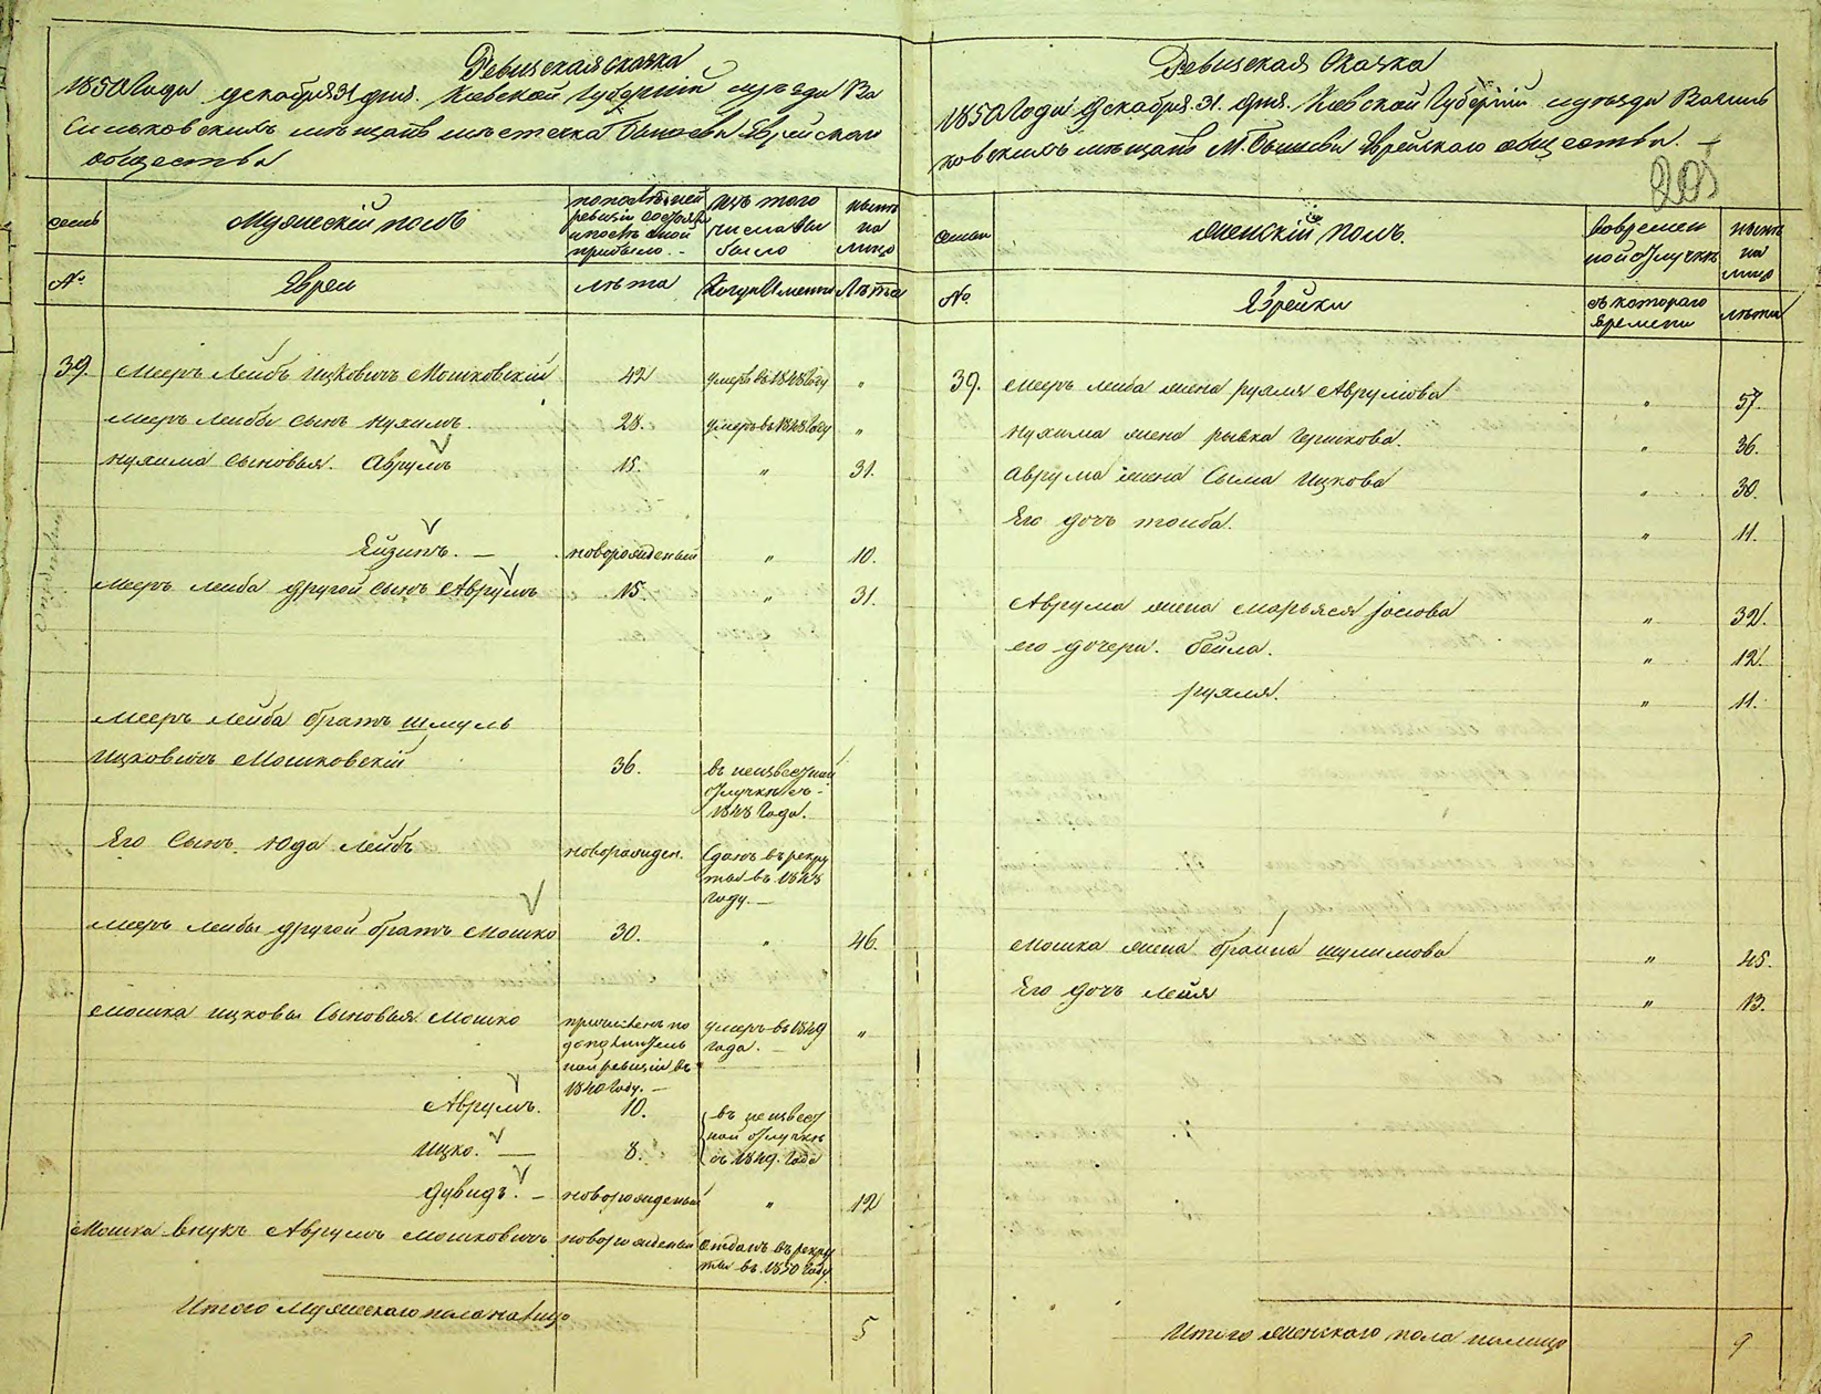 Ревизская сказка
1850 Года декабря 31 дня. Киевской Губернии уезда Ва
сильковскихъ мещанъ местечка Еврейскаго
общества
семьи
Мужескій полъ
по последней
ревизіи состояло
и после оной
прибыло. -
изъ того
числа вы
было
ныне
на
лицо
№
Евреи
лета
Когда Именно
Лета
39. Мееръ Лейбъ Ицковичъ Мошковскій 42 умеръ въ 1848 Году "
Мееръ Лейбы сынъ Нухимъ. 28. умеръ въ 1848 Году "
Нухима сыновья. Аврумъ 15. " 31.
новорожденный " 10.
Мееръ Лейба другой сынъ Аврумъ 15. " 31.
Мееръ Лейба братъ Шмуль
Ицковичъ Мошковскій 36. въ неизвестной
отлучке съ
1848 Года.
Его сынъ Юда Лейбъ новорожден. Сданъ въ рекру
ты въ 1848
году. —
Мееръ Лейбы другой братъ Мошко 30. " 46.
Мошка Ицковы Сыновья Мошко причисленъ по
дополнитель
ной ревизіи въ
1840 Году. —
умеръ въ 1849
года. — "
Аврумъ. 10. въ неизвест
Ицко. — 8. ной отлучке
съ 1849. Года
Дувидъ. — новорожденный " 12
Мошка внукъ Аврумъ Мошковичъ новорожденный отданъ въ рекру
ты въ 1850 Году
Итого мужескаго пола на лицо 5
Ревизская Сказка
1850 Года Декабря. 31. дня. Киевской Губерніи уезда Василь
ковскихъ мещанъ М. Еврейскаго общества. —
205
семьи
Женскій полъ.
во времен
ной отлучке
ныне
на
лицо
№
Еврейки
съ котораго
времени
лета
39. Мееръ Лейба жена Рухля Аврумова " 57.
Нухима жена Рывка Гершкова. " 36.
Аврума жена Сыма Ицкова " 30.
Его дочь Тоиба. " 11.
Аврума жена Марьяся Іосіова " 32.
его дочери. Бейла. " 12.
Рухля. " 11.
Мошка жена Брайна Шулимова " 45.
Его дочь Лейя " 13.
Итого женскаго пола налицо 9